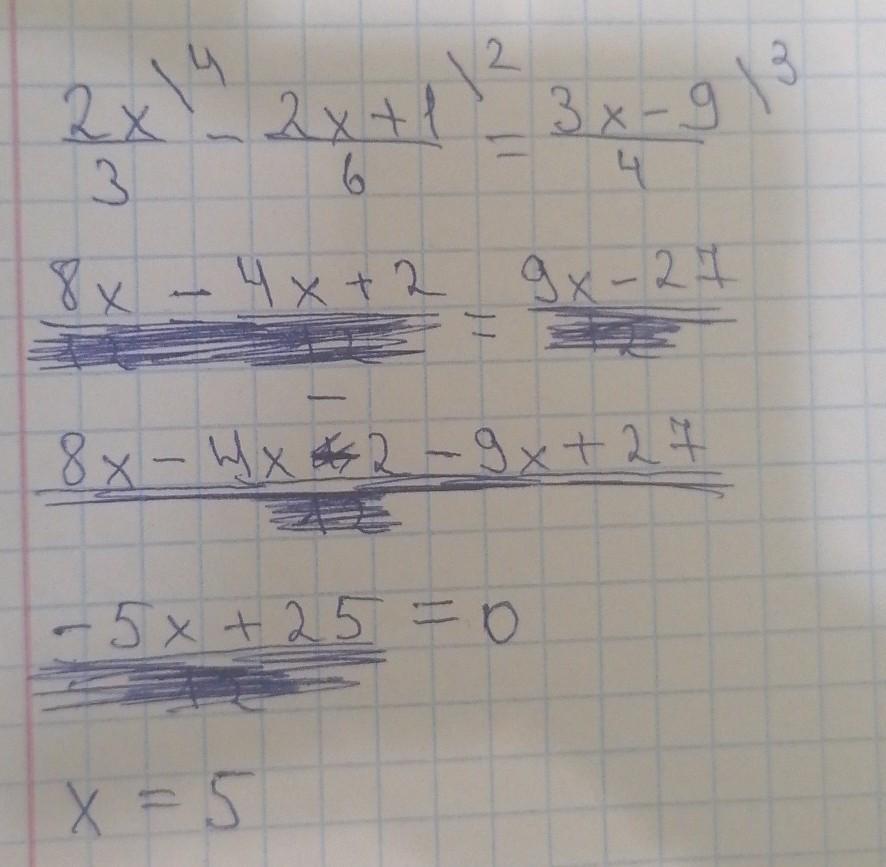 2x\4 / 3 - 2x+1\2 / 6 = 3x-9\3 / 4
8x - 4x+2 = 9x-27
8x - 4x - 2 - 9x + 27
-5x + 25 = 0
x = 5